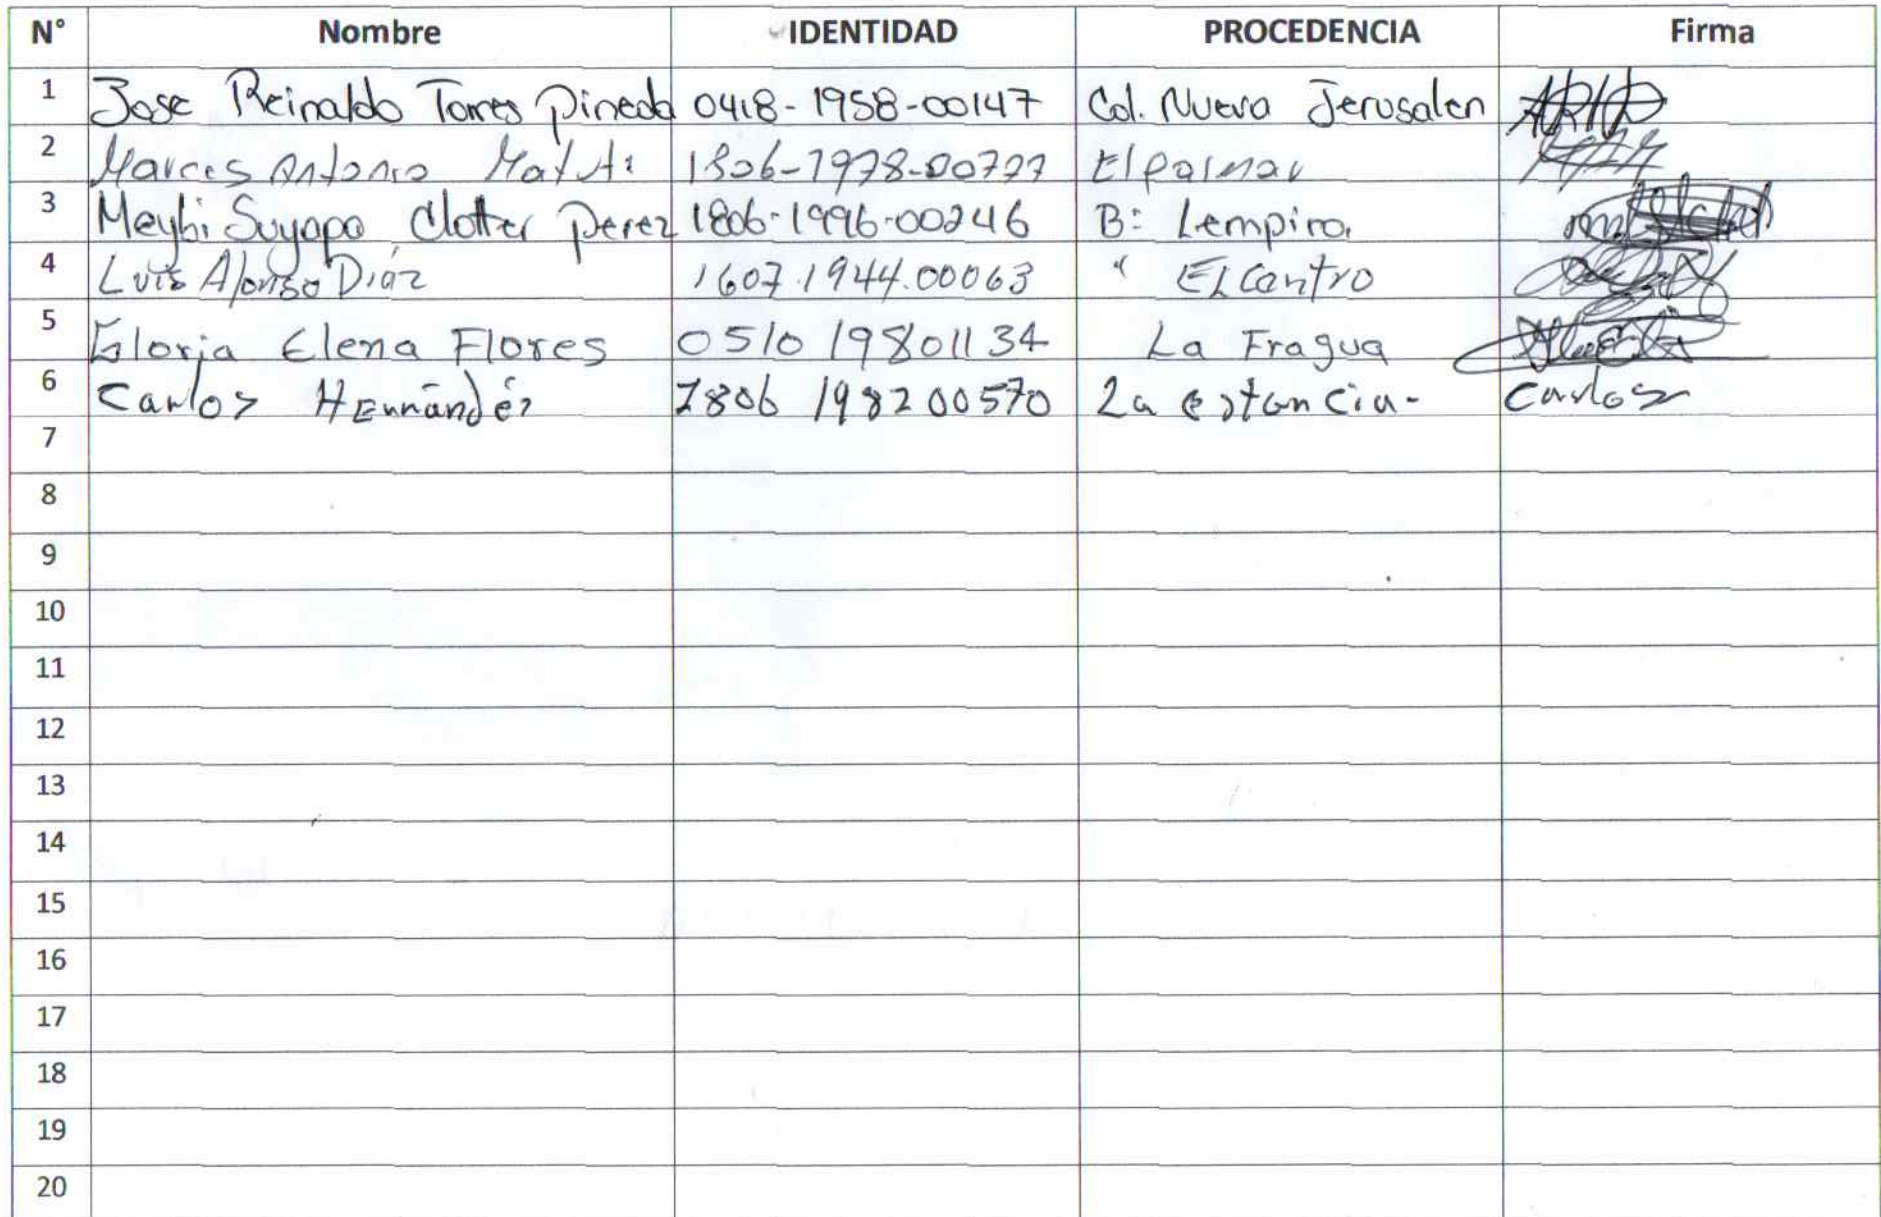 N° Nombre IDENTIDAD PROCEDENCIA Firma
1 Jose Reinaldo Torres Pineda 0418-1958-00147 Col. Nueva Jerusalen
2 Marcos Antonio 1806-1978-00777 El palmar
3 Meybi Suyapa Clotter perez 1806-1996-00246 B: Lempira
4 Luis Alonso Diaz 1607.1944.00063 " El Centro
5 Gloria Elena Flores 0510 19801134 La Fragua
6 Carlos Hernández 1806 198200570 La estancia- Carlos
7
8
9
10
11
12
13
14
15
16
17
18
19
20